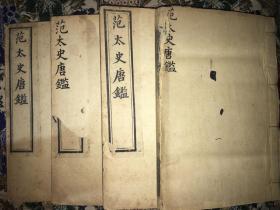 范太史唐鑑
范太史唐鑑
范太史唐鑑
范太史唐鑑